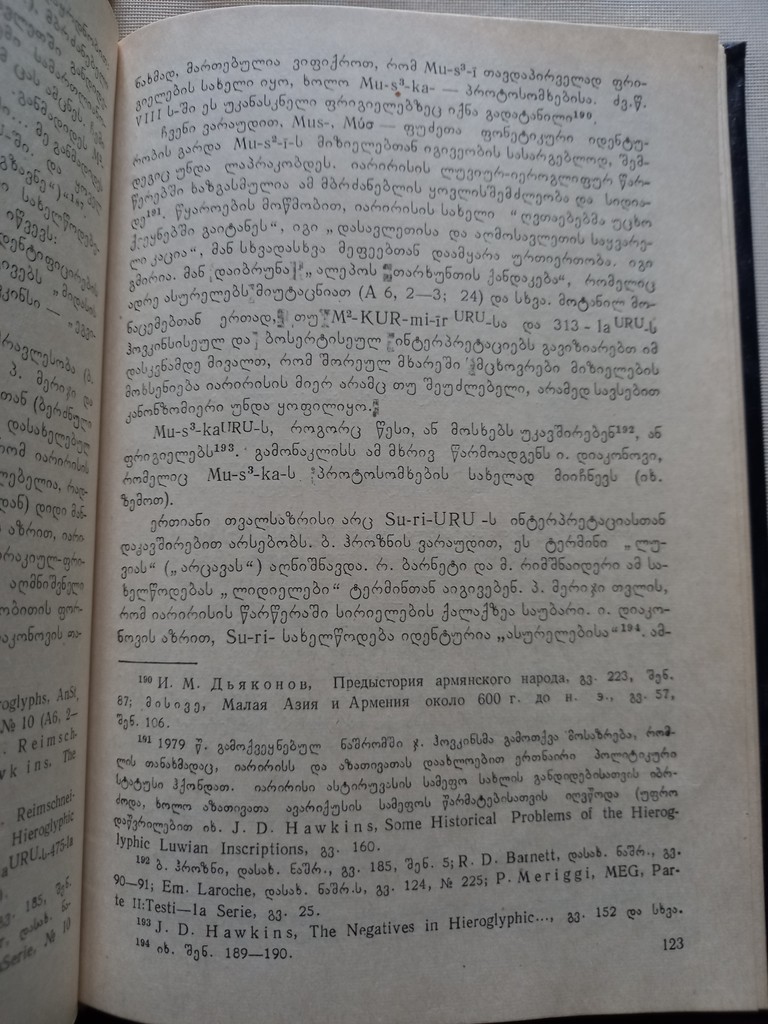 ნახმად, მართებულია ვიფიქროთ, რომ Mu-s³-ī თავდაპირველად ფრი-
გიელების სახელი იყო, ხოლო Mu-s³-ka- — პროტოსომხებისა. ძვ.წ.
VIII ს-ში ეს უკანასკნელი ფრიგიელებზეც იქნა გადატანილი¹⁹⁰.
ჩვენი ვარაუდით, Mus-, Μύσ — ფუძეთა ფონეტიკური იდენტუ-
რობის გარდა Mu-s³-ī-ს მიზიელებთან იგივეობის სასარგებლოდ, შემ-
დეგიც უნდა ლაპრაკობდეს. იარირისის ლუვიურ-იეროგლიფურ წარ-
წერებში ხაზგასმულია ამ მბრძანებლის ყოვლისშემძლეობა და სიდია-
დე¹⁹¹. წყაროების მოწმობით, იარირისის სახელი "ღვთაებებმა უცხო
ქვეყნებში გაიტანეს", იგი „დასავლეთისა და აღმოსავლეთის საყვარე-
ლი კაცია", მან სხვადასხვა მეფეებთან დაამყარა ურთიერთობა. იგი
გმირია. მან დაიბრუნა „ალეპოს თარხუნთის ქანდაკება", რომელიც
ადრე ასურელებს მიუტაცნიათ (A 6, 2—3; 24) და სხვა. მოტანილ მო-
ნაცემებთან ერთად, თუ Mª-KUR-mi-īr URU-სა და 313 - la URU-ს
ჰოვკინსისეულ და ბოსერტისეულ ინტერპრეტაციებს გავიზიარებთ იმ
დასკვნამდე მივალთ, რომ შორეულ მხარეში მცხოვრები მიზიელების
მოხსენიება იარირისის მიერ არამც თუ შეუძლებელი, არამედ სავსებით
კანონზომიერი უნდა ყოფილიყო.
Mu-s³-kaURU-ს, როგორც წესი, ან მოსხებს უკავშირებენ¹⁹², ან
ფრიგიელებს¹⁹³. გამონაკლისს ამ მხრივ წარმოადგენს ი. დიაკონოვი,
რომელიც Mu-s³-ka-ს პროტოსომხების სახელად მიიჩნევს (იხ.
ზემოთ).
ერთიანი თვალსაზრისი არც Su-ri-URU -ს ინტერპრეტაციასთან
დაკავშირებით არსებობს. ბ. ჰროზნის ვარაუდით, ეს ტერმინი „ლუ-
ვიას" („არცავას") აღნიშნავდა. რ. ბარნეტი და მ. რიმშნაიდერი ამ სა-
ხელწოდებას „ლიდიელები" ტერმინთან აიგივებენ. პ. მერიჯი თვლის,
რომ იარირისის წარწერაში სირიელების ქალაქზეა საუბარი. ი. დიაკო-
ნოვის აზრით, Su-ri- სახელწოდება იდენტურია „ასურელებისა"¹⁹⁴. ამ-
¹⁹⁰ И. М. Дьяконов, Предыстория армянского народа, გვ. 223, შენ.
87; მისივე, Малая Азия и Армения около 600 г. до н. э., გვ. 57,
შენ. 106.
¹⁹¹ 1979 წ. გამოქვეყნებულ ნაშრომში ჯ. ჰოვკინსმა გამოთქვა მოსაზრება, რომ-
ლის თანახმადაც, იარირისს და აზათივათას დაახლოებით ერთნაირი პოლიტიკური
სტატუსი ჰქონდათ. იარირისი ასტირუვასის სამეფო სახლის განდიდებისათვის იბრ-
ძოდა, ხოლო აზათივათა ავარიქუსის სამეფოს წარმატებისათვის იღვწოდა (უფრო
დაწვრილებით იხ. J. D. Hawkins, Some Historical Problems of the Hierog-
lyphic Luwian Inscriptions, გვ. 160.
¹⁹² ბ. ჰროზნი, დასახ. ნაშრ., გვ. 185, შენ. 5; R. D. Barnett, დასახ. ნაშრ., გვ.
90—91; Em. Laroche, დასახ. ნაშრ.ს, გვ. 124, № 225; P. Meriggi, MEG, Par-
te II:Testi—1a Serie, გვ. 25.
¹⁹³ J. D. Hawkins, The Negatives in Hieroglyphic..., გვ. 152 და სხვა.
¹⁹⁴ იხ. შენ. 189—190.
123